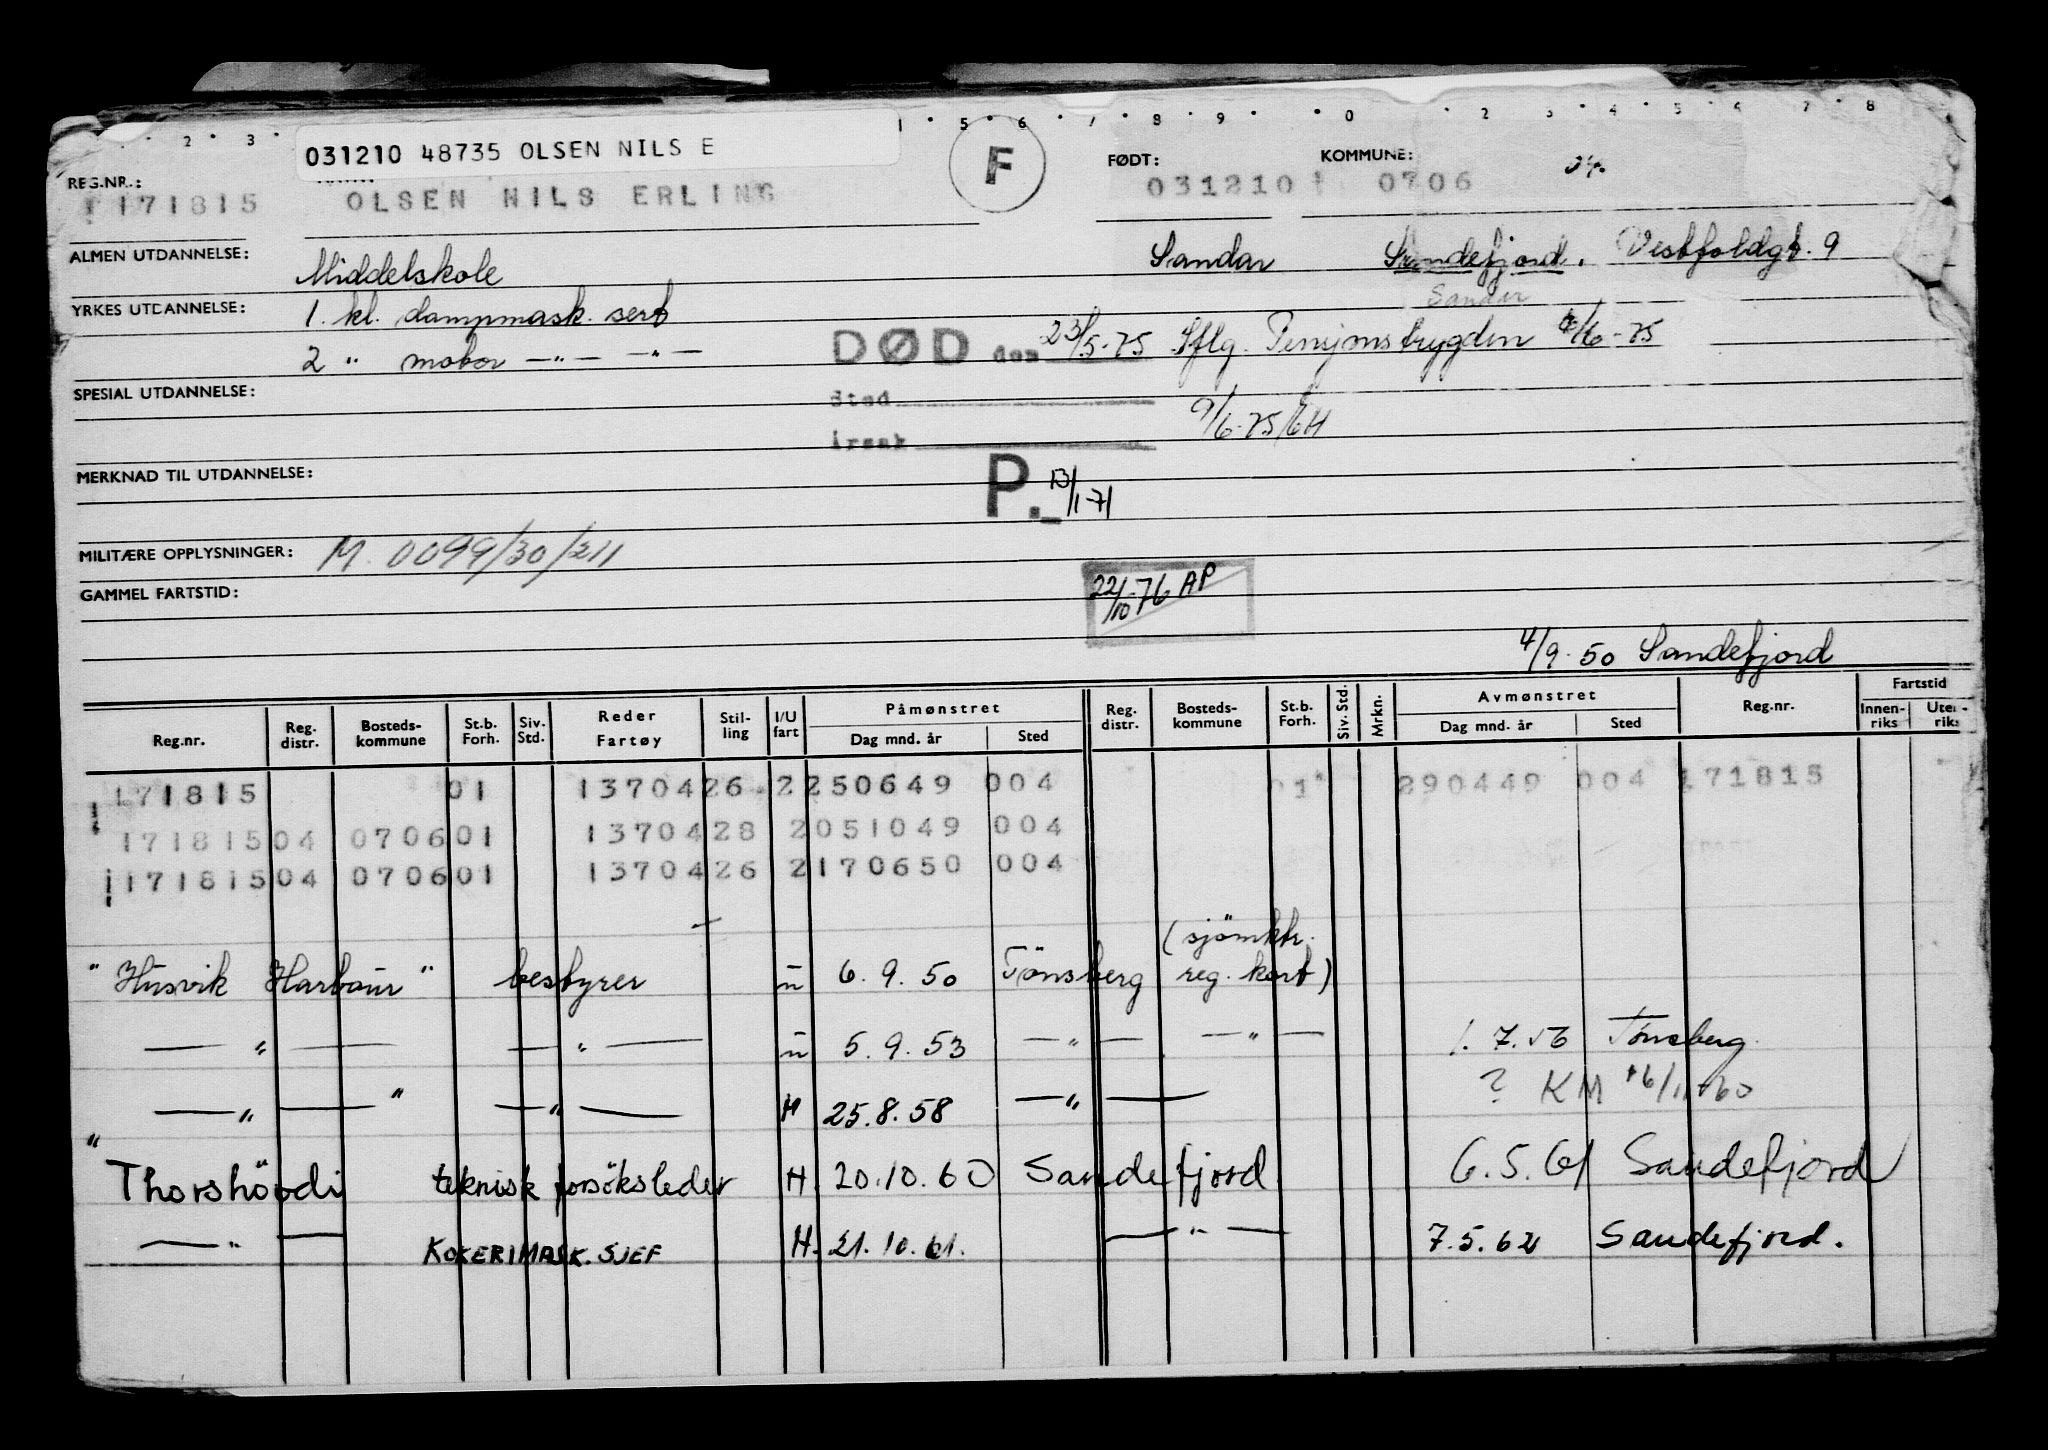 2 3 5 6 7 8 9 0 2 3 4 5 6 7 8
031210 48735 OLSEN NILS E
REG.NR.: F FØDT: KOMMUNE: 04.
171815 OLSEN NILS ERLING 031210 0706
ALMEN UTDANNELSE: Middelskole Sandar Sandefjord. Vestfoldgt. 9
Sandar
YRKES UTDANNELSE: 1. kl. dampmask. sert
2 " motor —"— —"— DØD den 23/5-75 Iflg. Pensjonstrygden 6/6-75
SPESIAL UTDANNELSE: Sted 9/6-75/GH
årsak
MERKNAD TIL UTDANNELSE: P. 13/1-71
MILITÆRE OPPLYSNINGER: M. 0099/30/211
GAMMEL FARTSTID: 22/10-76 AP
4/9-50 Sandefjord
Reg.nr. Reg. distr. Bosteds- kommune St.b. Forh. Siv. Std. Reder Fartøy Stil- ling I/U fart Påmønstret Dag mnd. år Sted Reg. distr. Bosteds- kommune St.b. Forh. Siv. Std. Mrkn. Avmønstret Dag mnd. år Sted Reg.nr. Fartstid Innen- riks Uten- riks
171815 01 1370426 2 250649 004 01 290449 004 171815
171815 04 0706 01 1370428 2 051049 004
171815 04 0706 01 1370426 2 170650 004
"Husvik Harbour" bestyrer u 6.9.50 Tønsberg (sjömktr. reg. kort)
—"— —"— u 5.9.53 —"— —"— 1.7.56 Tønsberg
—"— " —"— H 25.8.58 —"— ? KM 16/11-60
" Thorshövdi teknisk forsöksleder H. 20.10.60 Sandefjord 6.5.61 Sandefjord
—"— KOKERIMASK. SJEF H. 21.10.61. —"— 7.5.62 Sandefjord.